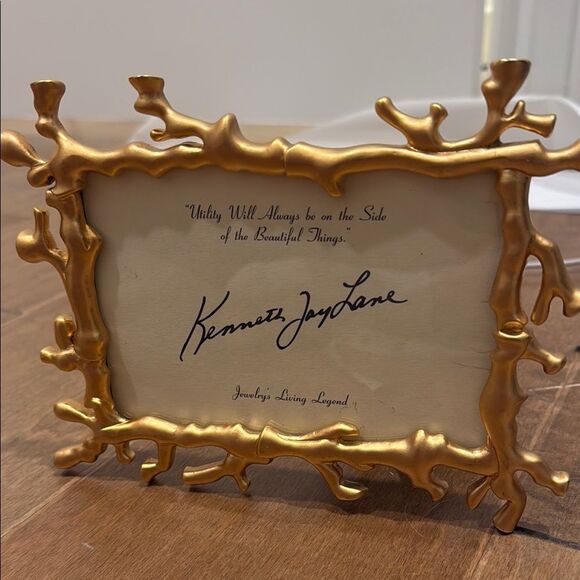 "Utility Will Always be on the Side
of the Beautiful Things."
Kenneth Jay Lane
Jewelry's Living Legend